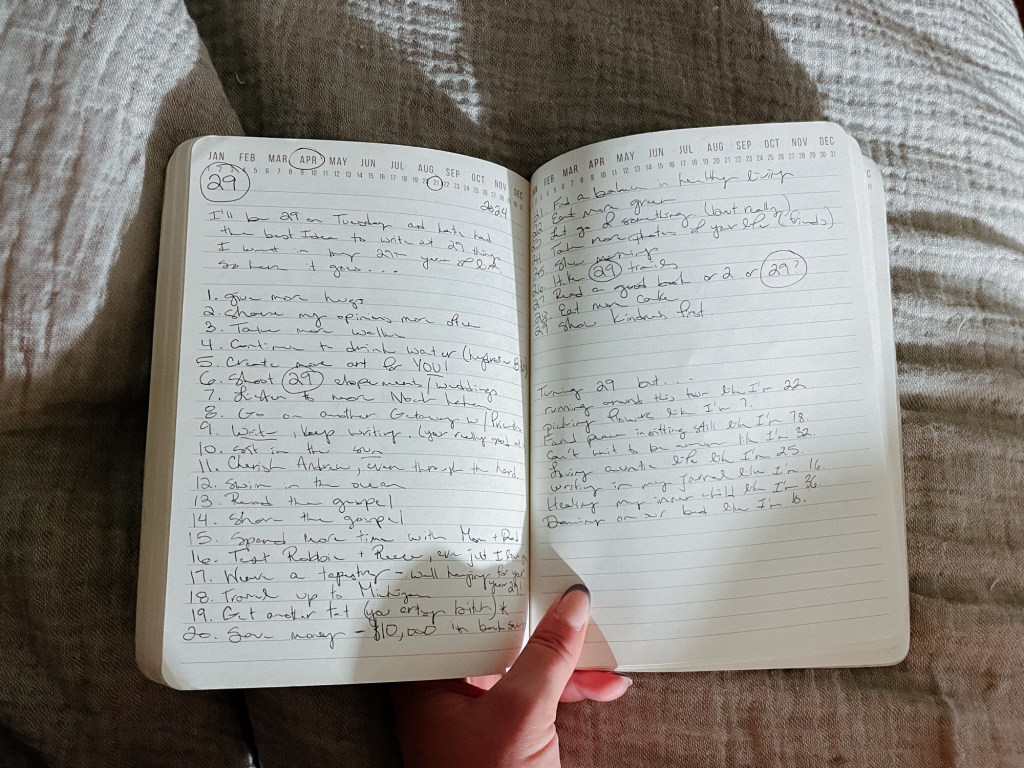 JAN FEB MAR APR MAY JUN JUL AUG SEP OCT NOV DEC
29
2024
I'll be 29 on Tuesday and had
the best idea to write at 29 things
I want in my 29th year of life
So here it goes...
1. Give more hugs
2. Share my opinions more often
3. Take more walks
4. Continue to drink water (hydrate
5. Create more art for YOU!
6. Shoot 29 elopements/weddings
7. Listen to more
8. Go on another Getaway w/
9. Write, keep writing. (your really good at
10. Sit in the sun
11. Cherish Andrew, even through the hard
12. Swim in the ocean
13. Read the gospel
14. Share the gospel
15. Spend more time with Mom + Dad
16. Text Robbie + Reece, even just
17. Weave a tapestry - wall hanging for your
year 29!
18. Travel up to Michigan
19. Get another tat (you artsy bitch) *
20. Save money - $10,000 in bank
JAN FEB MAR APR MAY JUN JUL AUG SEP OCT NOV DEC
21. Find a balance in healthy living
22. Eat more green
23. Let go of something (but really)
24. Take more photos of your life (friends)
25. Slow morning
26. Hike 29 trails
27. Read a good book or 2 or 29?
28. Eat more cake
29. Show kindness first.
Turning 29 but...
running around this town like I'm 22.
picking flowers like I'm 7.
Find peace in sitting still like I'm 78.
Can't wait to be a mom like I'm 32.
Living auntie life like I'm 25.
Writing in my journal like I'm 16.
Healing my inner child like I'm 36.
Dancing on my bed like I'm 6.